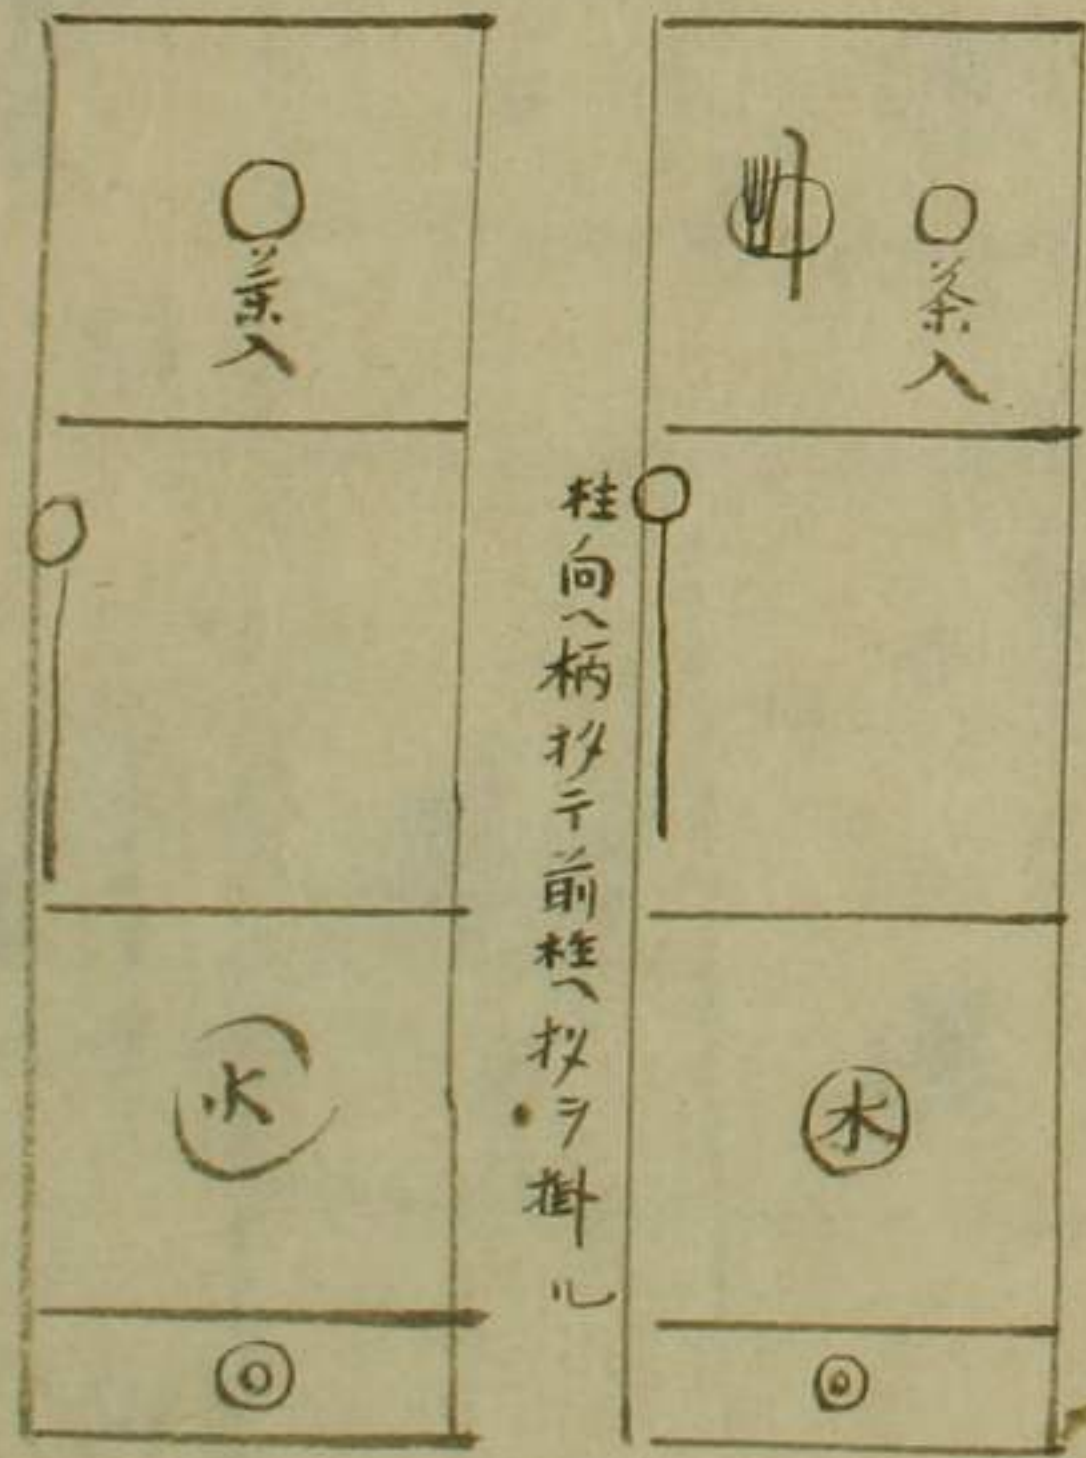 茶入
水
柱向ヘ柄杓ヲ前柱ヘ杓ヲ掛ル
茶入
水